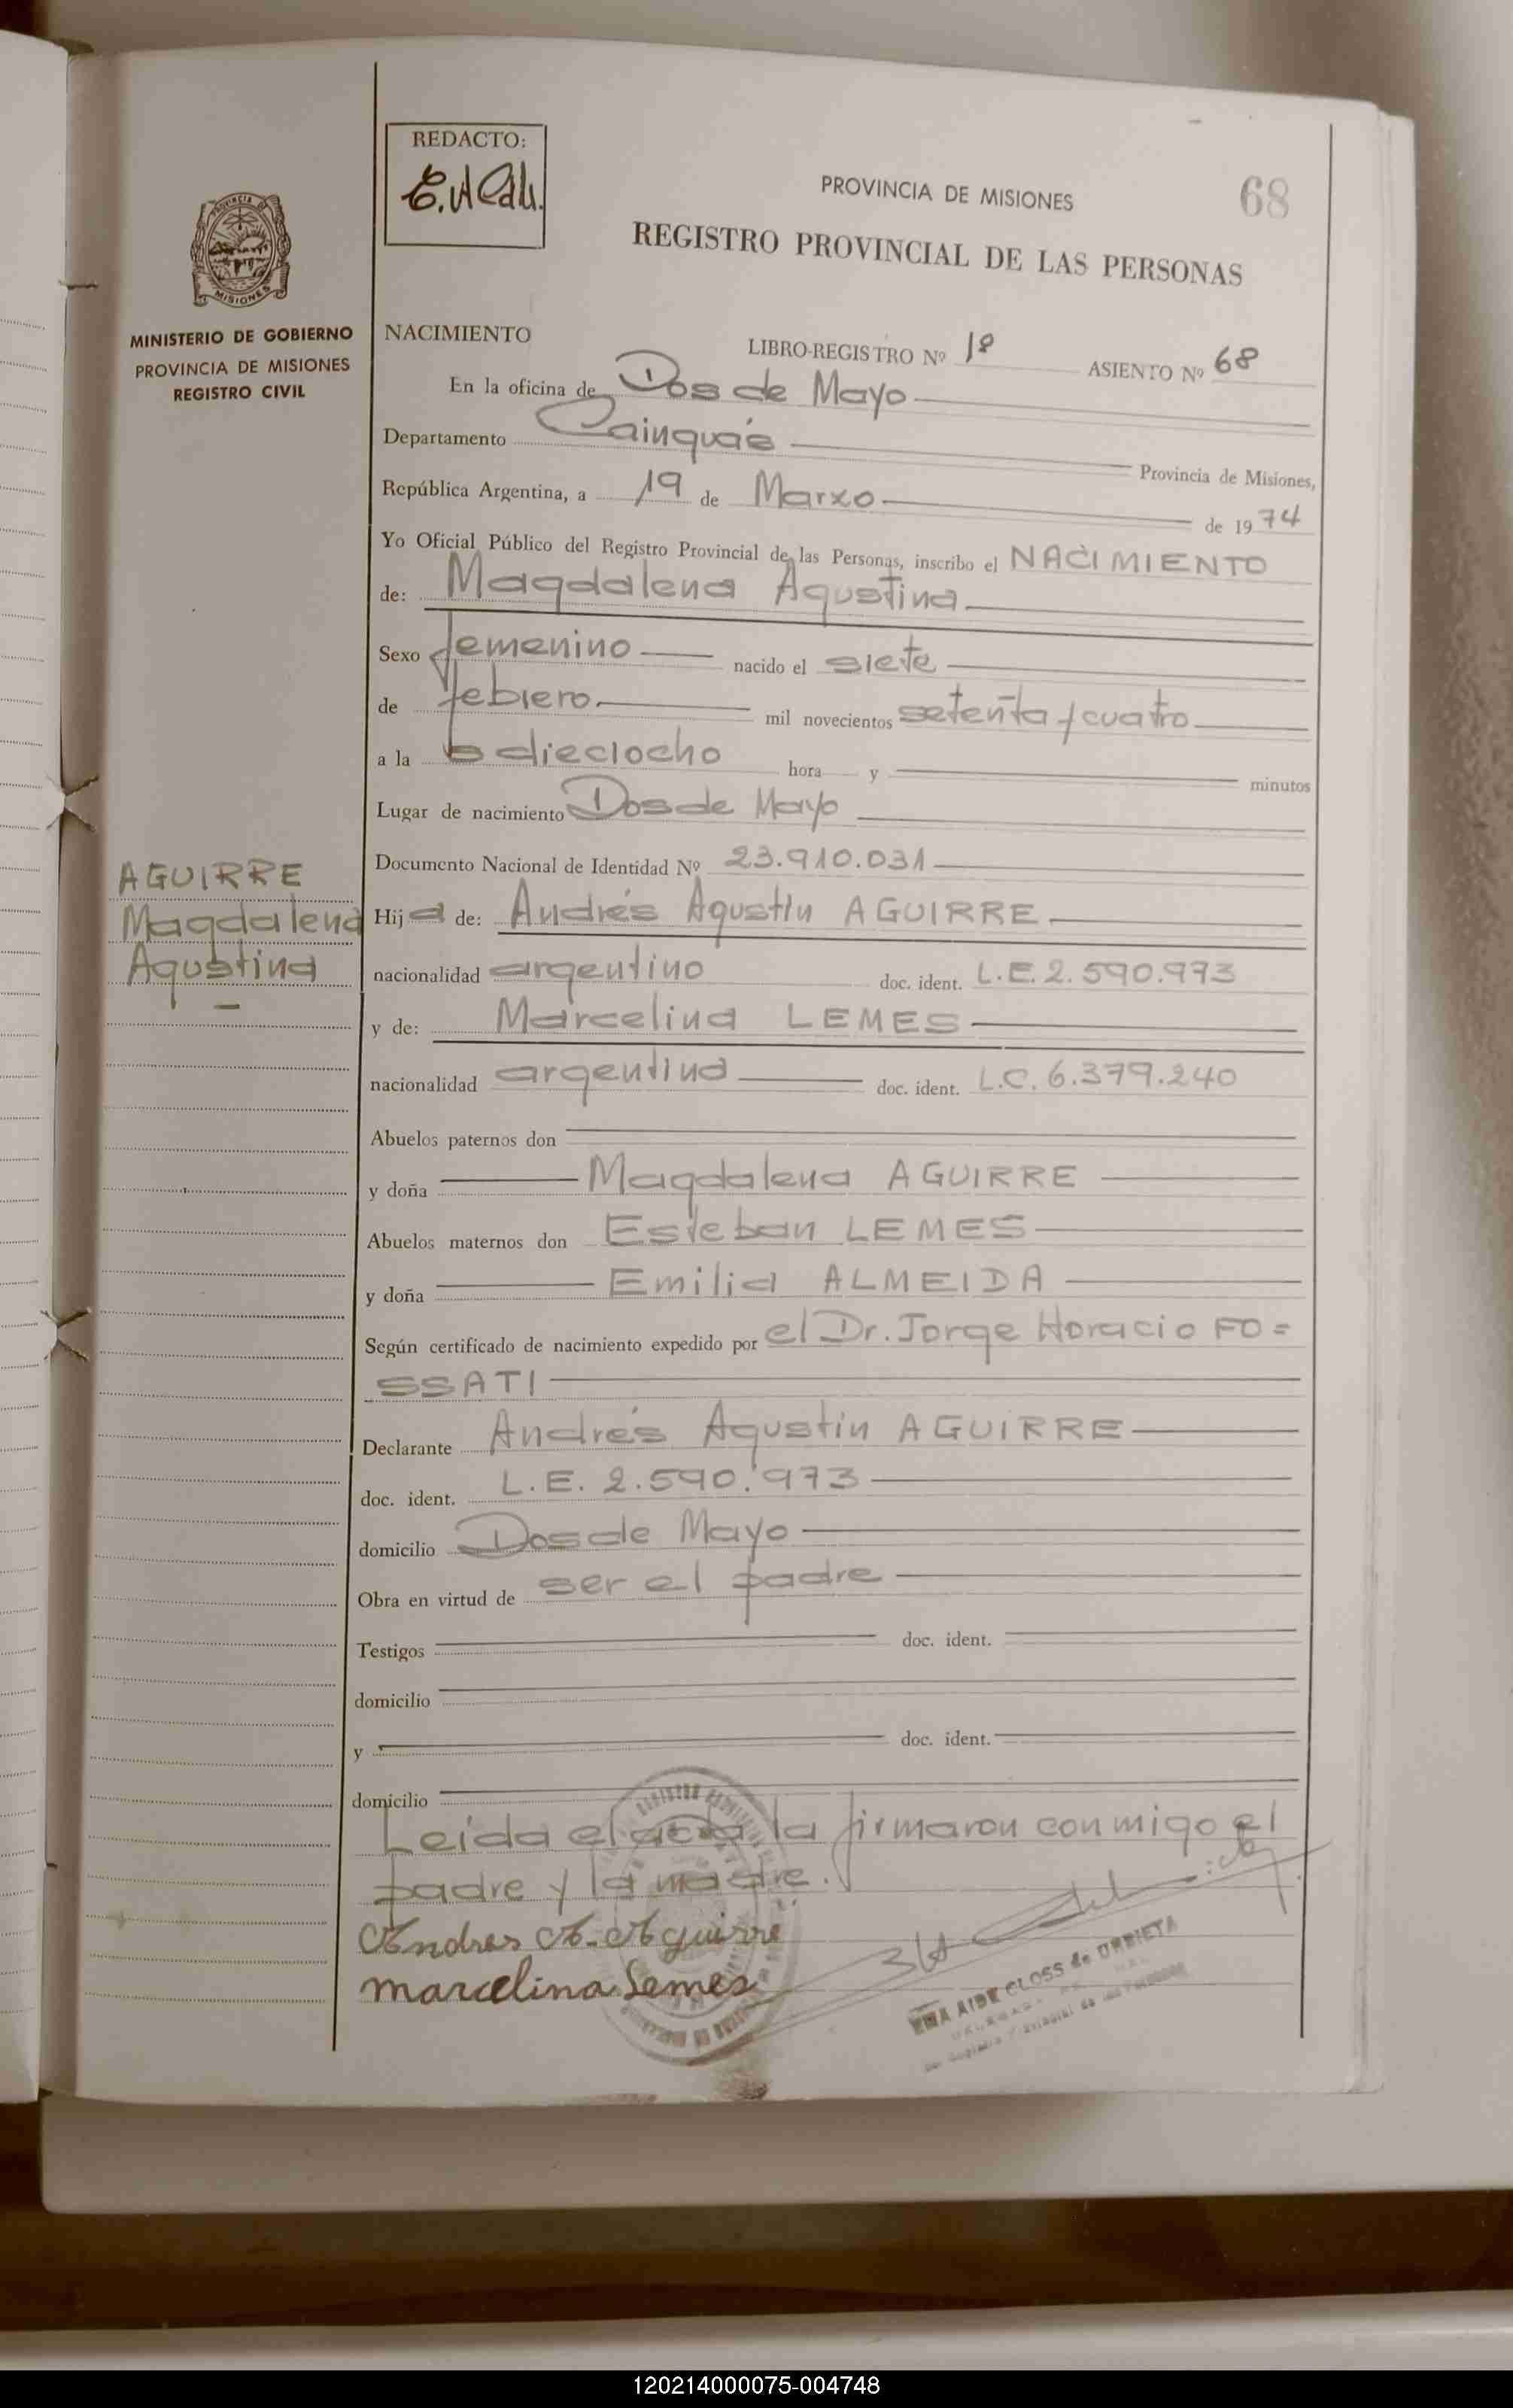 REDACTO:
PROVINCIA DE MISIONES
68
REGISTRO PROVINCIAL DE LAS PERSONAS
MISIONES
MINISTERIO DE GOBIERNO
PROVINCIA DE MISIONES
REGISTRO CIVIL
NACIMIENTO
LIBRO-REGISTRO Nº 18 ASIENTO Nº 68
En la oficina de Dos de Mayo
Departamento Cainguás Provincia de Misiones,
República Argentina, a 19 de Marzo de 1974
Yo Oficial Público del Registro Provincial de las Personas, inscribo el NACIMIENTO
de: Magdalena Agustina
Sexo femenino nacido el siete
de febrero mil novecientos setenta y cuatro
a la s dieciocho hora y minutos
Lugar de nacimiento Dos de Mayo
Documento Nacional de Identidad Nº 23.910.031
AGUIRRE
Magdalena
Agustina
Hija de: Andrés Agustín AGUIRRE
nacionalidad argentino doc. ident. L.E. 2.590.973
y de: Marcelina LEMES
nacionalidad argentina doc. ident. L.C. 6.379.240
Abuelos paternos don
y doña Magdalena AGUIRRE
Abuelos maternos don Esteban LEMES
y doña Emilia ALMEIDA
Según certificado de nacimiento expedido por el Dr. Jorge Horacio FO=
SSATI
Declarante Andrés Agustín AGUIRRE
doc. ident. L.E. 2.590.973
domicilio Dos de Mayo
Obra en virtud de ser el padre
Testigos doc. ident.
domicilio
y doc. ident.
domicilio
Leída el acta la firmaron conmigo el
padre y la madre.
Andres A. Aguirre
marcelina Lemes
AIDE CLOSS de URRIETA
120214000075-004748